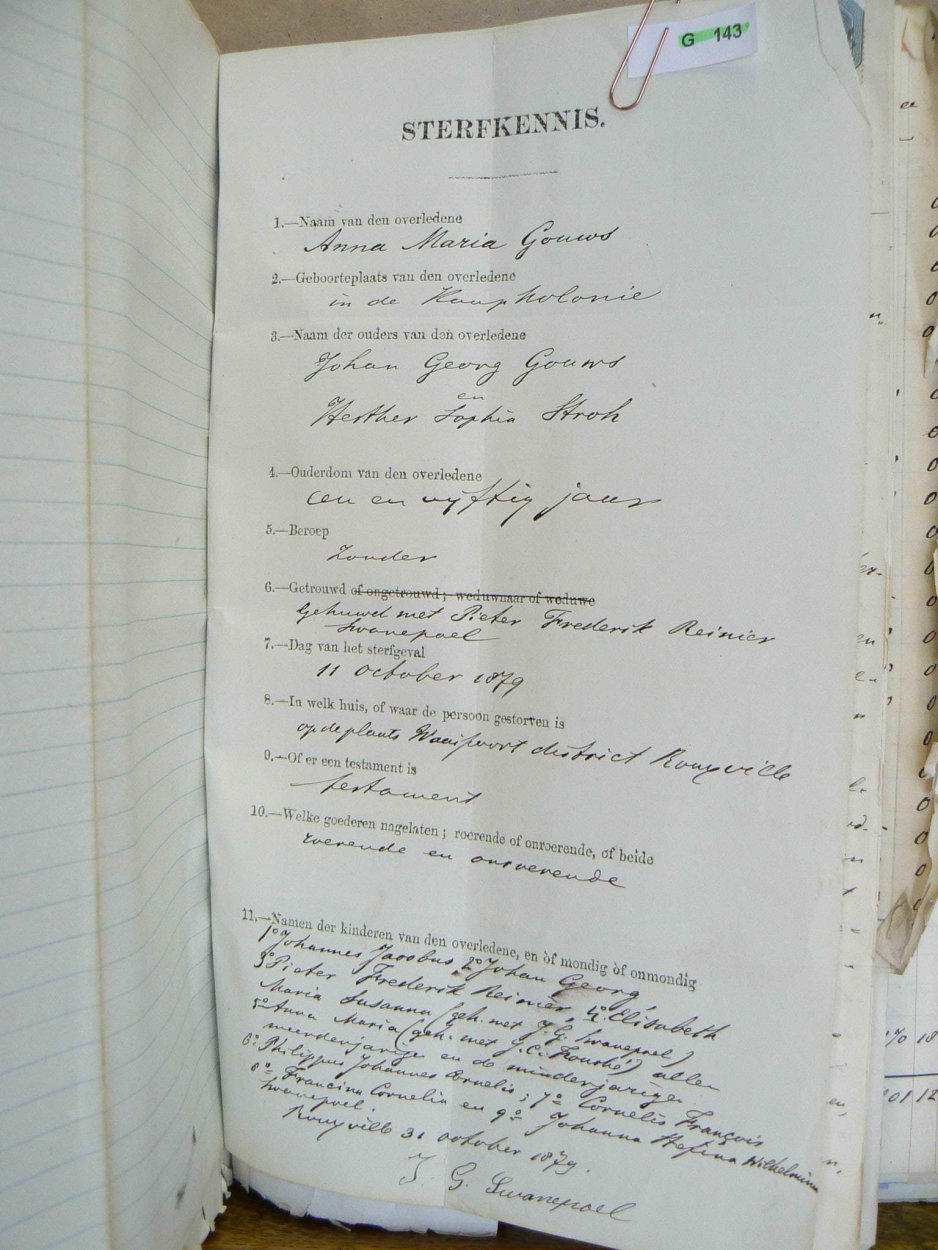 G 143
STERFKENNIS.
1.—Naam van den overledene
Anna Maria Gouws
2.—Geboorteplaats van den overledene
in de Kaap Kolonie
3.—Naam der ouders van den overledene
Johan Georg Gouws
en
Hesther Sophia Stroh
4.—Ouderdom van den overledene
een en vyftig jaar
5.—Beroep
Zonder
6.—Getrouwd of ongetrouwd; weduwnaar of weduwe
Gehuwd met Pieter Frederik Reinier
Swanepoel
7.—Dag van het sterfgeval
11 October 1879
8.—In welk huis, of waar de persoon gestorven is
op de plaats Waaipoort district Rouxville
9.—Of er een testament is
testament
10.—Welke goederen nagelaten; roerende of onroerende, of beide
roerende en onroerende
11.—Namen der kinderen van den overledene, en òf mondig òf onmondig
1o Johannes Jacobus 2o Johan Georg,
3o Pieter Frederik Reinier, 4o Elisabeth
Maria Susanna (geh. met J. G. Swanepoel)
5o Anna Maria (geh. met J. C. Fouché) allen
meerderjarig en de minderjarige
6o Philippus Johannes Cornelis; 7o Cornelis François
8o Francina Cornelia en 9o Johanna Stefina Wilhelmina
Swanepoel.
Rouxville 31 October 1879.
J. G. Swanepoel